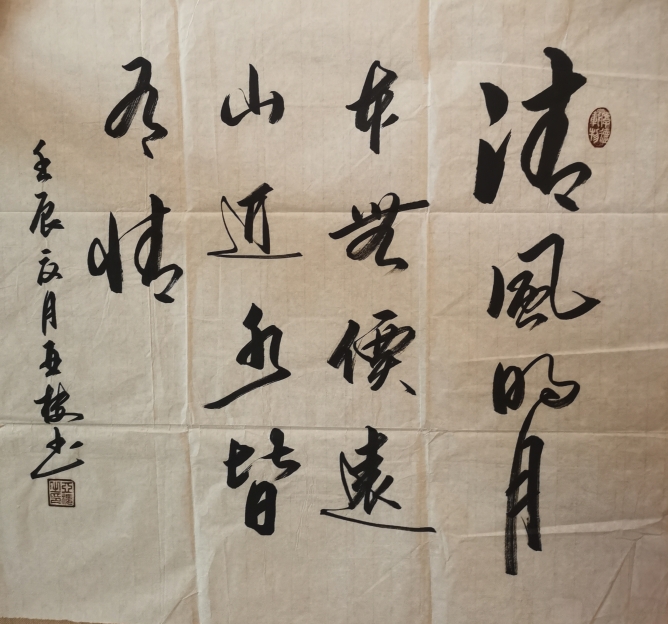 清風明月
本無價遠
山近水皆
有情
壬辰六月亚梅书